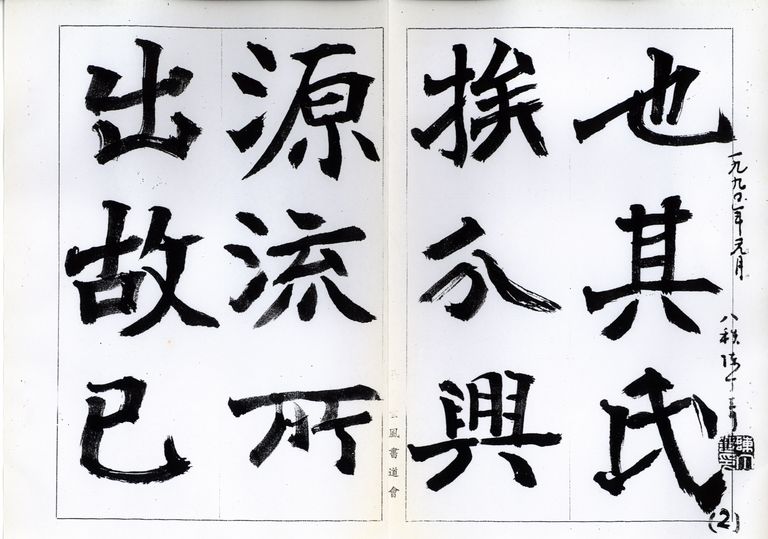 也其氏
挨分興
源流所
出故已
一九九〇年元月
八秩陳丁奇
風書道會
(2)